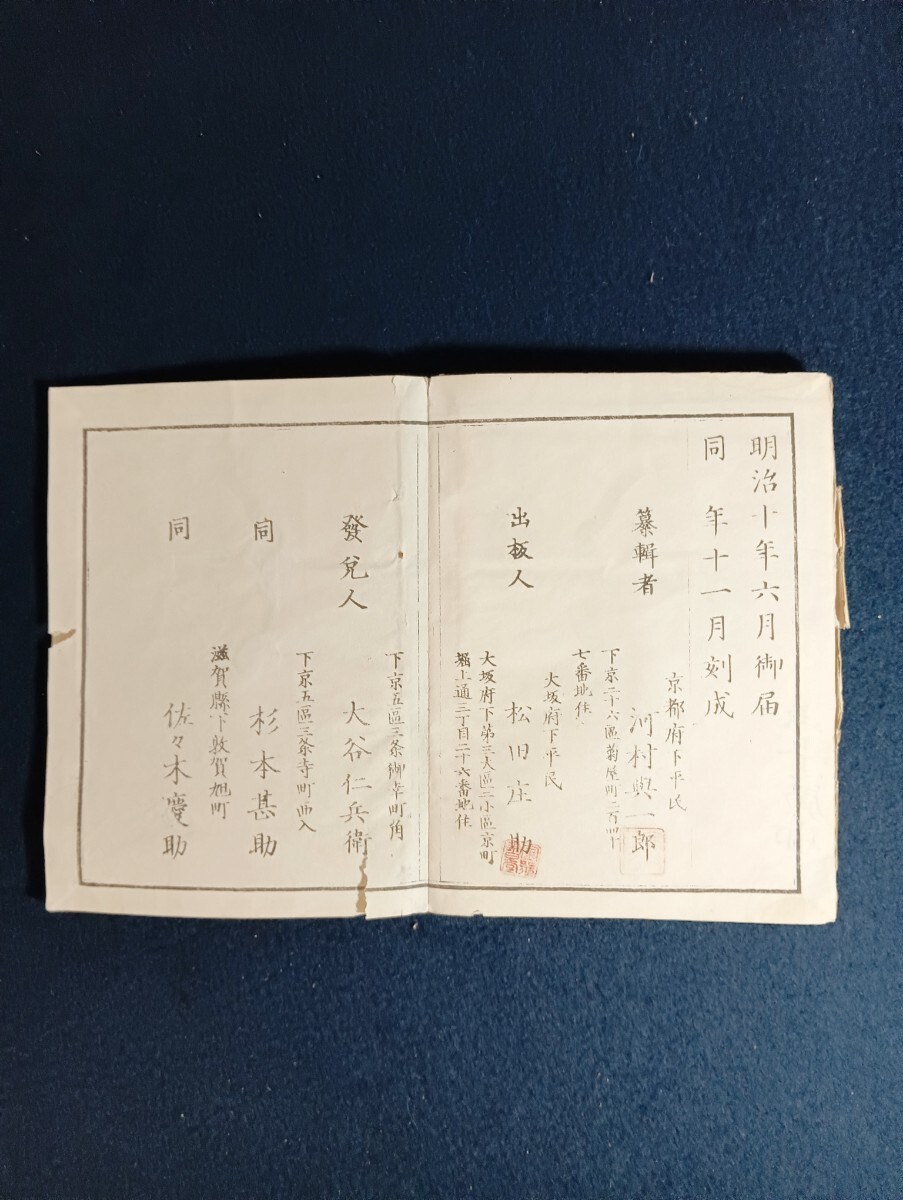 明治十年六月御届
同年十一月刻成
京都府下平民
纂輯者 河村與一郎
下京二十六區菊屋町二百四十
七番地住
大坂府下平民
出板人 松田庄助
大坂府下第三大區三小區京町
堀上通三丁目二十六番地住
下京五區三条御幸町角
發兌人 大谷仁兵衛
下京五區三条寺町西入
同 杉本甚助
滋賀縣下敦賀旭町
同 佐々木慶助